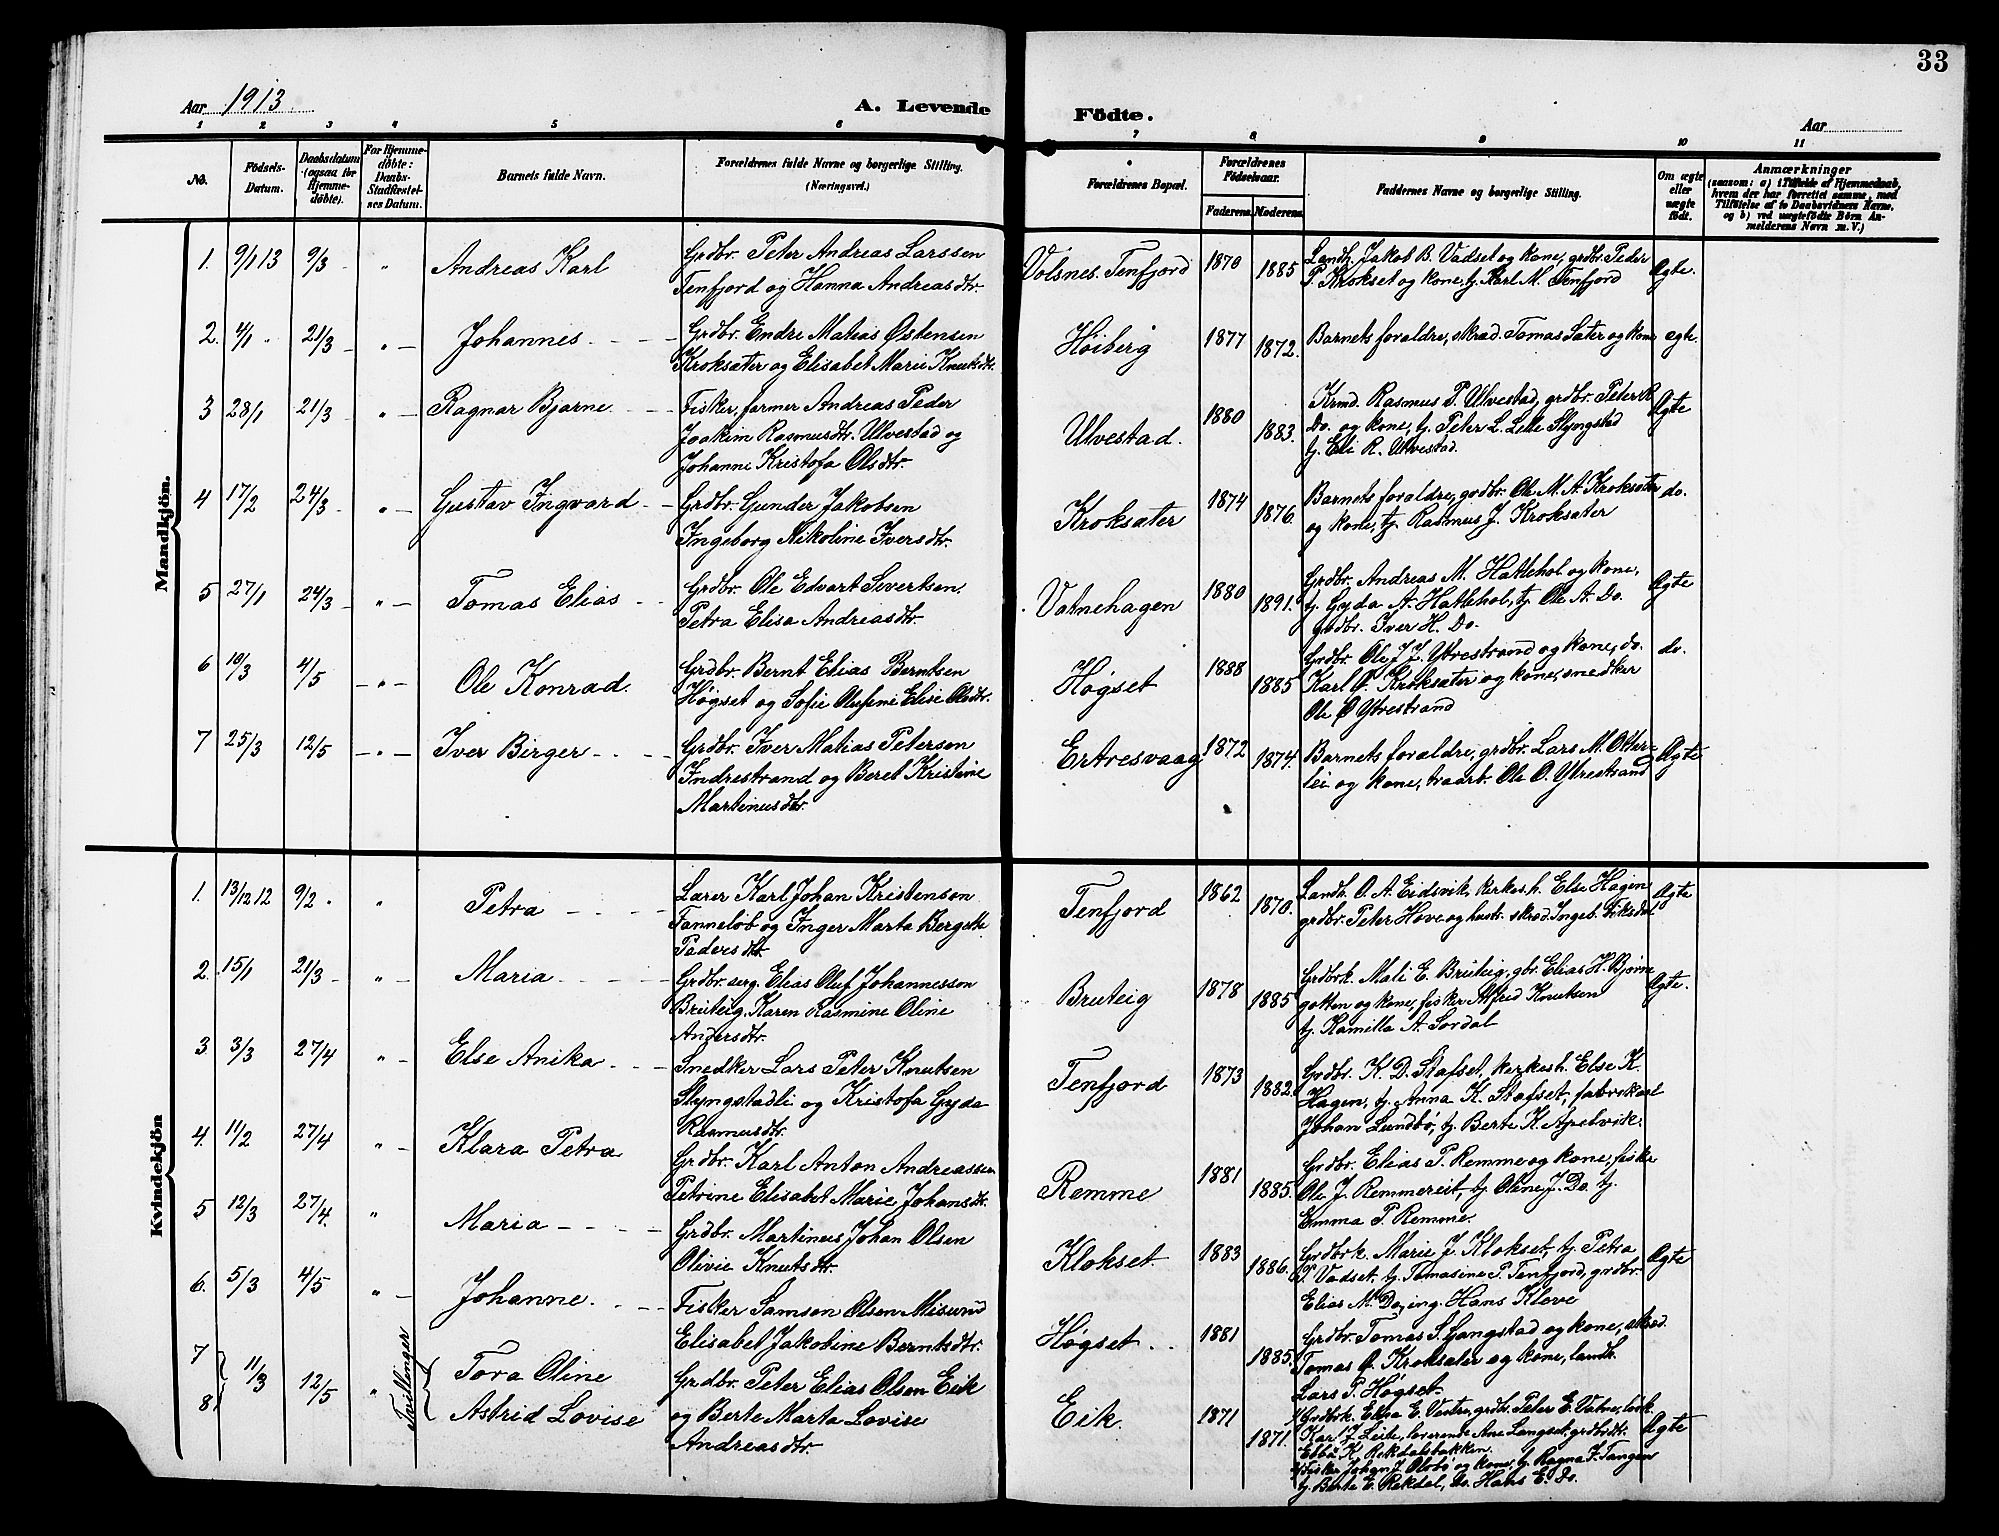 33
Aar 1913
A. Levende Födte.
Aar
1 2 3 4 5 6 7 8 9 10 11
No.
Födsels-Datum.
Daabsdatum (ogsaa for Hjemmedöbte).
For Hjemmedöbte: Daabs-Stadfæstelses Datum.
Barnets fulde Navn.
Forældrenes fulde Navne og borgerlige Stilling.
(Næringsvei.)
Forældrenes Bopæl.
Forældrenes Födselsaar.
Faderens. Moderens.
Faddernes Navne og borgerlige Stilling.
Om ægte eller uægte födt.
Anmærkninger
(saasom: a) i Tilfælde af Hjemmedaab,
hvem der har forrettet samme, med
Tilföielse af to Daabsvidners Navne,
og b) ved uægtefödte Börn An-
melderens Navn m. V.)
Mandkjön.
1. 9/1 13 9/3 - " Andreas Karl
Grdbr. Peter Andreas Larssen
Tenfjord og Hanna Andreasdtr.
Volsnes. Tenfjord 1870 1885
Landh. Jakob B. Vadset og kone, grdbr. Peder
P. Krokset og kone, tj. Karl M. Tenfjord
Ægte.
2. 4/1 " 21/3 - " - Johannes
Grdbr. Endre Matias Østensen
Kroksæter og Elisabet Marie Knutsdtr.
Høiberg 1877 1872.
Barnets forældre, skræd. Tomas Sæter og kone
egte.
3 28/1 21/3 - " - Ragnar Bjarne
Fisker, farmer Andreas Peder
Joakim Rasmusdtr. Ulvestad og
Johanne Kristofa Olsdtr.
Ulvestad. 1880 1883.
Krmd. Rasmus P. Ulvestad, grdbr. Peter R
Do. og kone, tj. Peter L. Lille Slyngstad
tj. Eli R. Ulvestad.
Ægte
4 17/2 24/3 - " - Gustav Ingvard
Grdbr. Gunder Jakobsen
Ingeborg Nikoline Iversdtr.
Kroksæter 1874 1876.
Barnets forældre, grdbr. Ole M. A. Kroksæter
og kone, tj. Rasmus J. Kroksæter
do.
5 27/1 24/3 - " - Tomas Elias
Grdbr. Ole Edvart Sivertsen.
Petra Elisa Andreasdtr.
Vatnehagen 1880 1891.
Grdbr. Andreas M. Hatlehol og kone,
tj. Gyda A. Hatlehol, tj. Ole A. Do.
grdbr. Iver H. Do.
Ægte
6 10/3 4/5 - " - Ole Konrad.
Grdbr. Bernt Elias Berntsen
Høgset og Sofie Olufine Elise Olsdtr.
Høgset 1888 1885
Grdbr. Ole J. J. Ytrestrand og kone, do.
Karl O. Kroksæter og kone, snedker
Ole O Ytrestrand
do.
7 25/3 12/5 - " - Iver Birger
Grdbr. Iver Matias Petersen
Indrestrand og Beret Kristine
Martinusdtr.
Ertresvaag 1872 1874.
Barnets forældre, grdbr. Lars M. Otter-
lei og kone, træarb. Ole O. Ytrestrand
Ægte
Kvindekjön
1. 13/12 12 9/2 " " Petra
Lærer Karl Johan Kristensen
Tanneløb og Inger Marta Bergette
Pedersdtr.
Tenfjord 1862 1870.
Landh. O. A. Eidsvik, kirkesh. Else Hagen
grdbr. Peter Hove og hustr. skræd. Ingeb. Fiksdal
Ægte
2. 15/1 21/3 - " - Maria
Grdbr. serg. Elias Oluf Johannessen
Bruteig. Karen Rasmine Oline
Andersdtr.
Bruteig 1878 1885
Grdbrk. Mali E. Bruteig, gbr. Elias H. Bjørne
gotten og kone, fisker Alfred Knutsen
tj. Kamilla A. Sordal
Ægte.
3 3/3 27/4 " - Else Anika
Snedker Lars Peter Knutsen
Slyngstadli og Kristofa Gyda
Rasmusdtr.
Tenfjord 1873 1882.
Grdbr. K. D. Stafset, kirkesh. Else K.
Hagen, tj. Anna K. Stafset, fabrikarb
Johan Lundbø, tj. Berte K. Apelvik.
4. 11/2 27/4 " - Klara Petra
Grdbr. Karl Anton Andreassen
Petrine Elisabet Marie Johansdtr.
Remme 1881 1885.
Grdbr. Elias P. Remme og kone, fiske
Ole J. Remmereit, tj. Oline J. Do. tj.
Emma P. Remme.
5 12/3 27/4. " Maria
Grdbr. Martinus Johan Olsen
Olivie Knutsdtr.
Klokset. 1883 1886.
Grdbrk. Marie J. Klokset, tj. Petra
P. Vadset, tj. Tomasine P. Tenfjord, grdbr.
Elias M. Do, ing. Hans Kleve
Ægte
6. 5/3 4/5 " - Johanne.
Fisker Samson Olsen Misund
Elisabet Jakobine Berntsdtr.
Høgset 1881 1885.
Grdbr. Tomas S. Gangstad og kone, skræd.
Tomas O. Kroksæter og kone, landh.
Lars P. Høgset
7 8 11/3 12/5 " Tvillinger
Tora Oline
Astrid Lovise
Grdbr. Peter Elias Olsen Eik
og Berte Marta Lovise
Andreasdtr.
Eik. 1871 1871.
Grdbrk. Elisa E. Vestre, grdbr. Peter E. Vatne, løsk.
Kar J. Leite, lærerinde Ane Langset, grdbrdtr.
Ebba K. Rekdalsbakken.
Fisker Johan J. Olsbø og kone, tj. Ragna J. Tangen
tj. Berte E. Rekdal, do. Hans E. Do.
Ægte